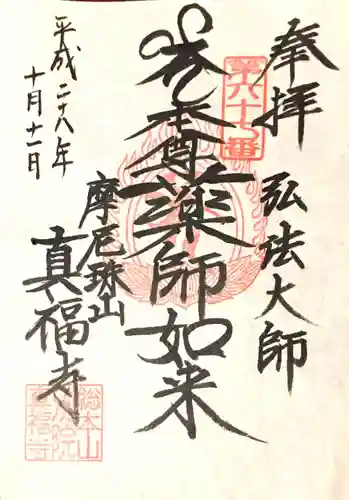 奉拝
弘法大師
第六十七番
本尊薬師如来
摩尼珠山
真福寺
平成二十八年
十月十一日